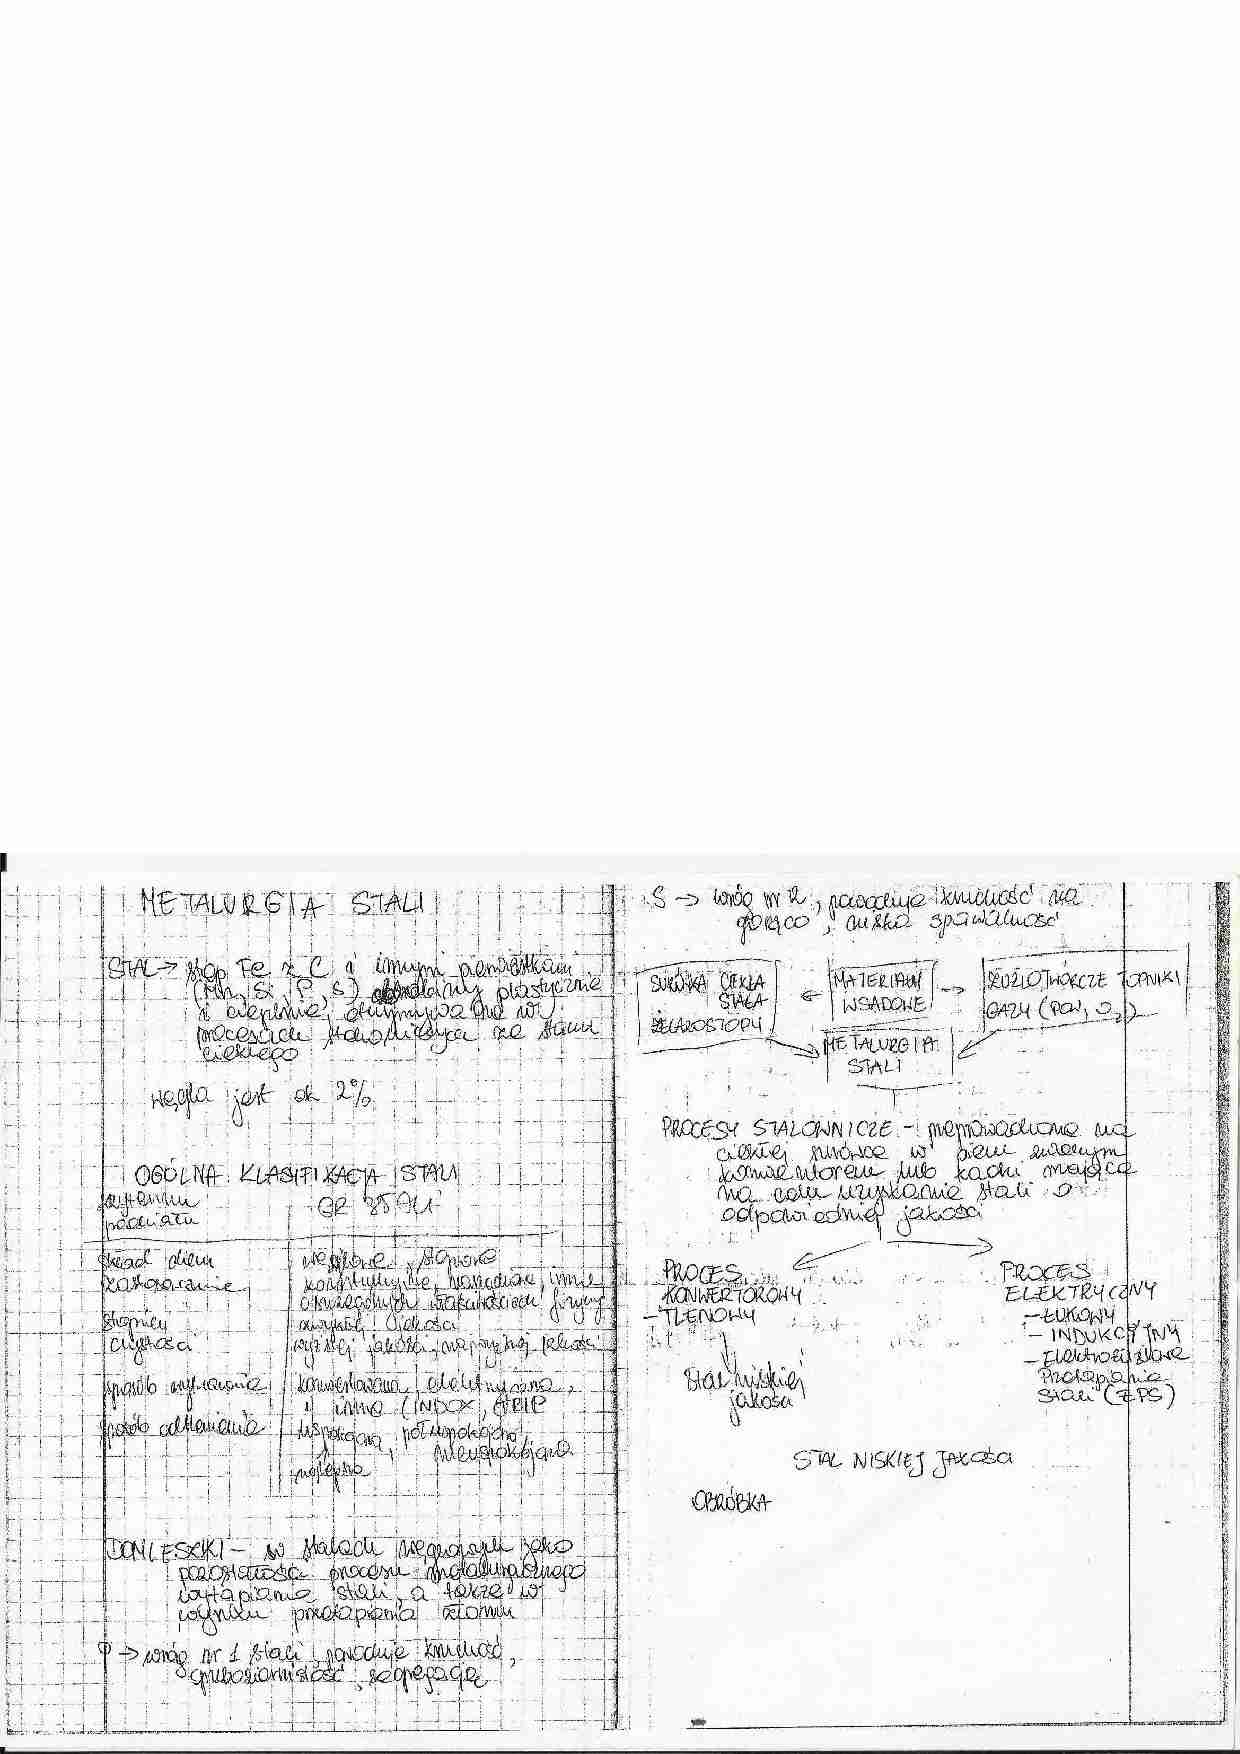 METALURGIA STALI
STAL → stop Fe z C i innymi pierwiastkami
(Mn, Si, P, S) obrabialny plastycznie
i cieplnie, otrzymywane w
procesach stalowniczych ze stanu
ciekłego
węgla jest ok 2%
OGÓLNA KLASYFIKACJA STALI
kryterium
podziału
skład chem
węglowe, stopowe
zastosowanie
konstrukcyjne, narzędziowe, inne
o szczególnych właściwościach fizycz
stopnień
zwykłej jakości
czystości
wyższej jakości, najwyższej jakości
sposób wytwarzania
konwertorowa, elektryczna,
i inne
sposób odtlenienia
uspokojona, półuspokojona,
nieuspokojona
najlepsza
DOMIESZKI – w stalach węglowych jako
pozostałość procesu metalurgicznego
wytapiania stali, a także w
wyniku przetapiania złomu
P → wróg nr 1 stali, powoduje kruchość,
gruboziarnistość, segregację
S → wróg nr 2, powoduje kruchość na
gorąco, niska spawalność
SURÓWKA CIEKŁA
STAŁA
ŻELAZOSTOPY
←
MATERIAŁY
WSADOWE
→
ŻUŻLOTWÓRCZE TOPNIKI
GAZY (POW, O₂)
METALURGIA
STALI
PROCESY STALOWNICZE – przeprowadzone na
ciekłej surówce w piecu zwanym
konwertorem lub kadzi mające
na celu uzyskanie stali o
odpowiedniej jakości
PROCES
KONWERTOROWY
– TLENOWY
Stal niskiej
jakości
PROCES
ELEKTRYCZNY
– ŁUKOWY
– INDUKCYJNY
– Elektrożużlowe
Przetapianie
Stali (EPS)
STAL NISKIEJ JAKOŚCI
OBRÓBKA